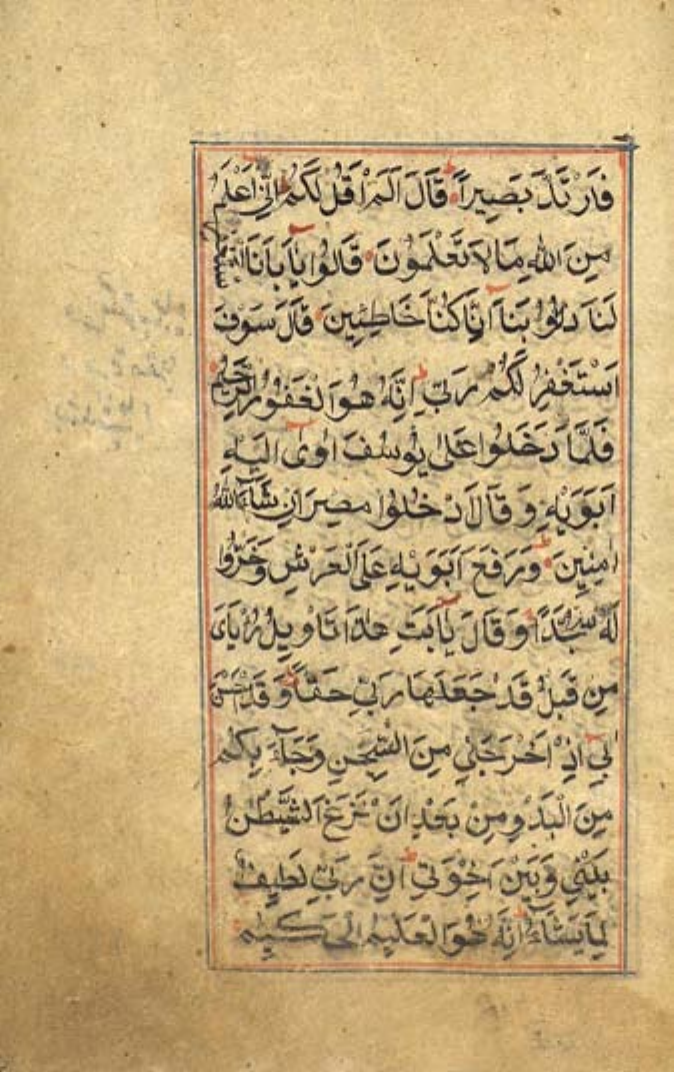 فَارْتَدَّ بَصِيرًا قَالَ اَلَمْ اَقُلْ لَكُمْ اِنِّي اَعْلَمُ
مِنَ اللهِ مَا لَا تَعْلَمُونَ قَالُوا يَا اَبَانَا اسْتَغْفِرْ
لَنَا ذُنُوبَنَا اِنَّا كُنَّا خَاطِئِينَ قَالَ سَوْفَ
اَسْتَغْفِرُ لَكُمْ رَبِّي اِنَّهُ هُوَ الْغَفُورُ الرَّحِيمُ
فَلَمَّا دَخَلُوا عَلٰى يُوسُفَ اٰوٰى اِلَيْهِ
اَبَوَيْهِ وَ قَالَ ادْخُلُوا مِصْرَ اِنْ شَآءَ اللهُ
اٰمِنِينَ وَرَفَعَ اَبَوَيْهِ عَلَى الْعَرْشِ وَخَرُّوا
لَهُ سُجَّدًا وَ قَالَ يَا اَبَتِ هٰذَا تَاْوِيلُ رُءْيَايَ
مِنْ قَبْلُ قَدْ جَعَلَهَا رَبِّي حَقًّا وَ قَدْ اَحْسَنَ
بِي اِذْ اَخْرَجَنِي مِنَ السِّجْنِ وَجَآءَ بِكُمْ
مِنَ الْبَدْوِ مِنْ بَعْدِ اَنْ نَزَغَ الشَّيْطٰنُ
بَيْنِي وَبَيْنَ اِخْوَتِي اِنَّ رَبِّي لَطِيفٌ
لِمَا يَشَآءُ اِنَّهُ هُوَ الْعَلِيمُ الْحَكِيمُ